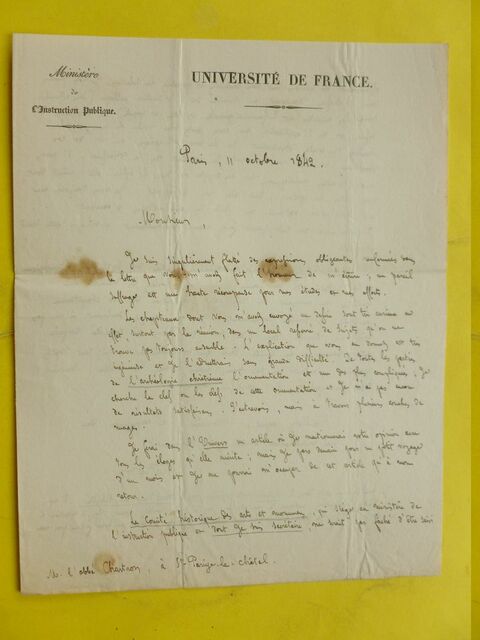 Ministère
de
L'Instruction Publique.
UNIVERSITÉ DE FRANCE.
Paris, 11 octobre 1842.
Monsieur,
Je suis singulièrement flatté des expressions obligeantes renfermées dans
la lettre que vous m'avez fait l'honneur de m'écrire; un pareil
suffrage est une haute récompense pour mes études et mes efforts.
Les chapiteaux dont vous m'avez envoyé un dessin sont très curieux en
effet, surtout par la réunion, dans un local resserré de sujets qu'on ne
trouve pas toujours ensemble. L'explication que vous en donnez est très
ingénieuse et je l'admettrais sans grande difficulté. De toutes les parties
de l'archéologie chrétienne l'ornementation est une des plus compliquées; je
cherche la clef ou les clefs de cette ornementation et je n'ai pas encore
de résultats satisfaisans. J'entrevois, mais à travers plusieurs couches de
nuages.
Je ferai dans l'Univers un article où je mentionnerai votre opinion avec
tous les éloges qu'elle mérite; mais je pars demain pour un petit voyage
d'un mois et je ne pourrai m'occuper de cet article qu'à mon
retour.
Le Comité historique des arts et monumens, qui siège au ministère de
l'instruction publique et dont je suis secrétaire ne serait pas fâché d'être
M. l'abbé à St le-châtel.